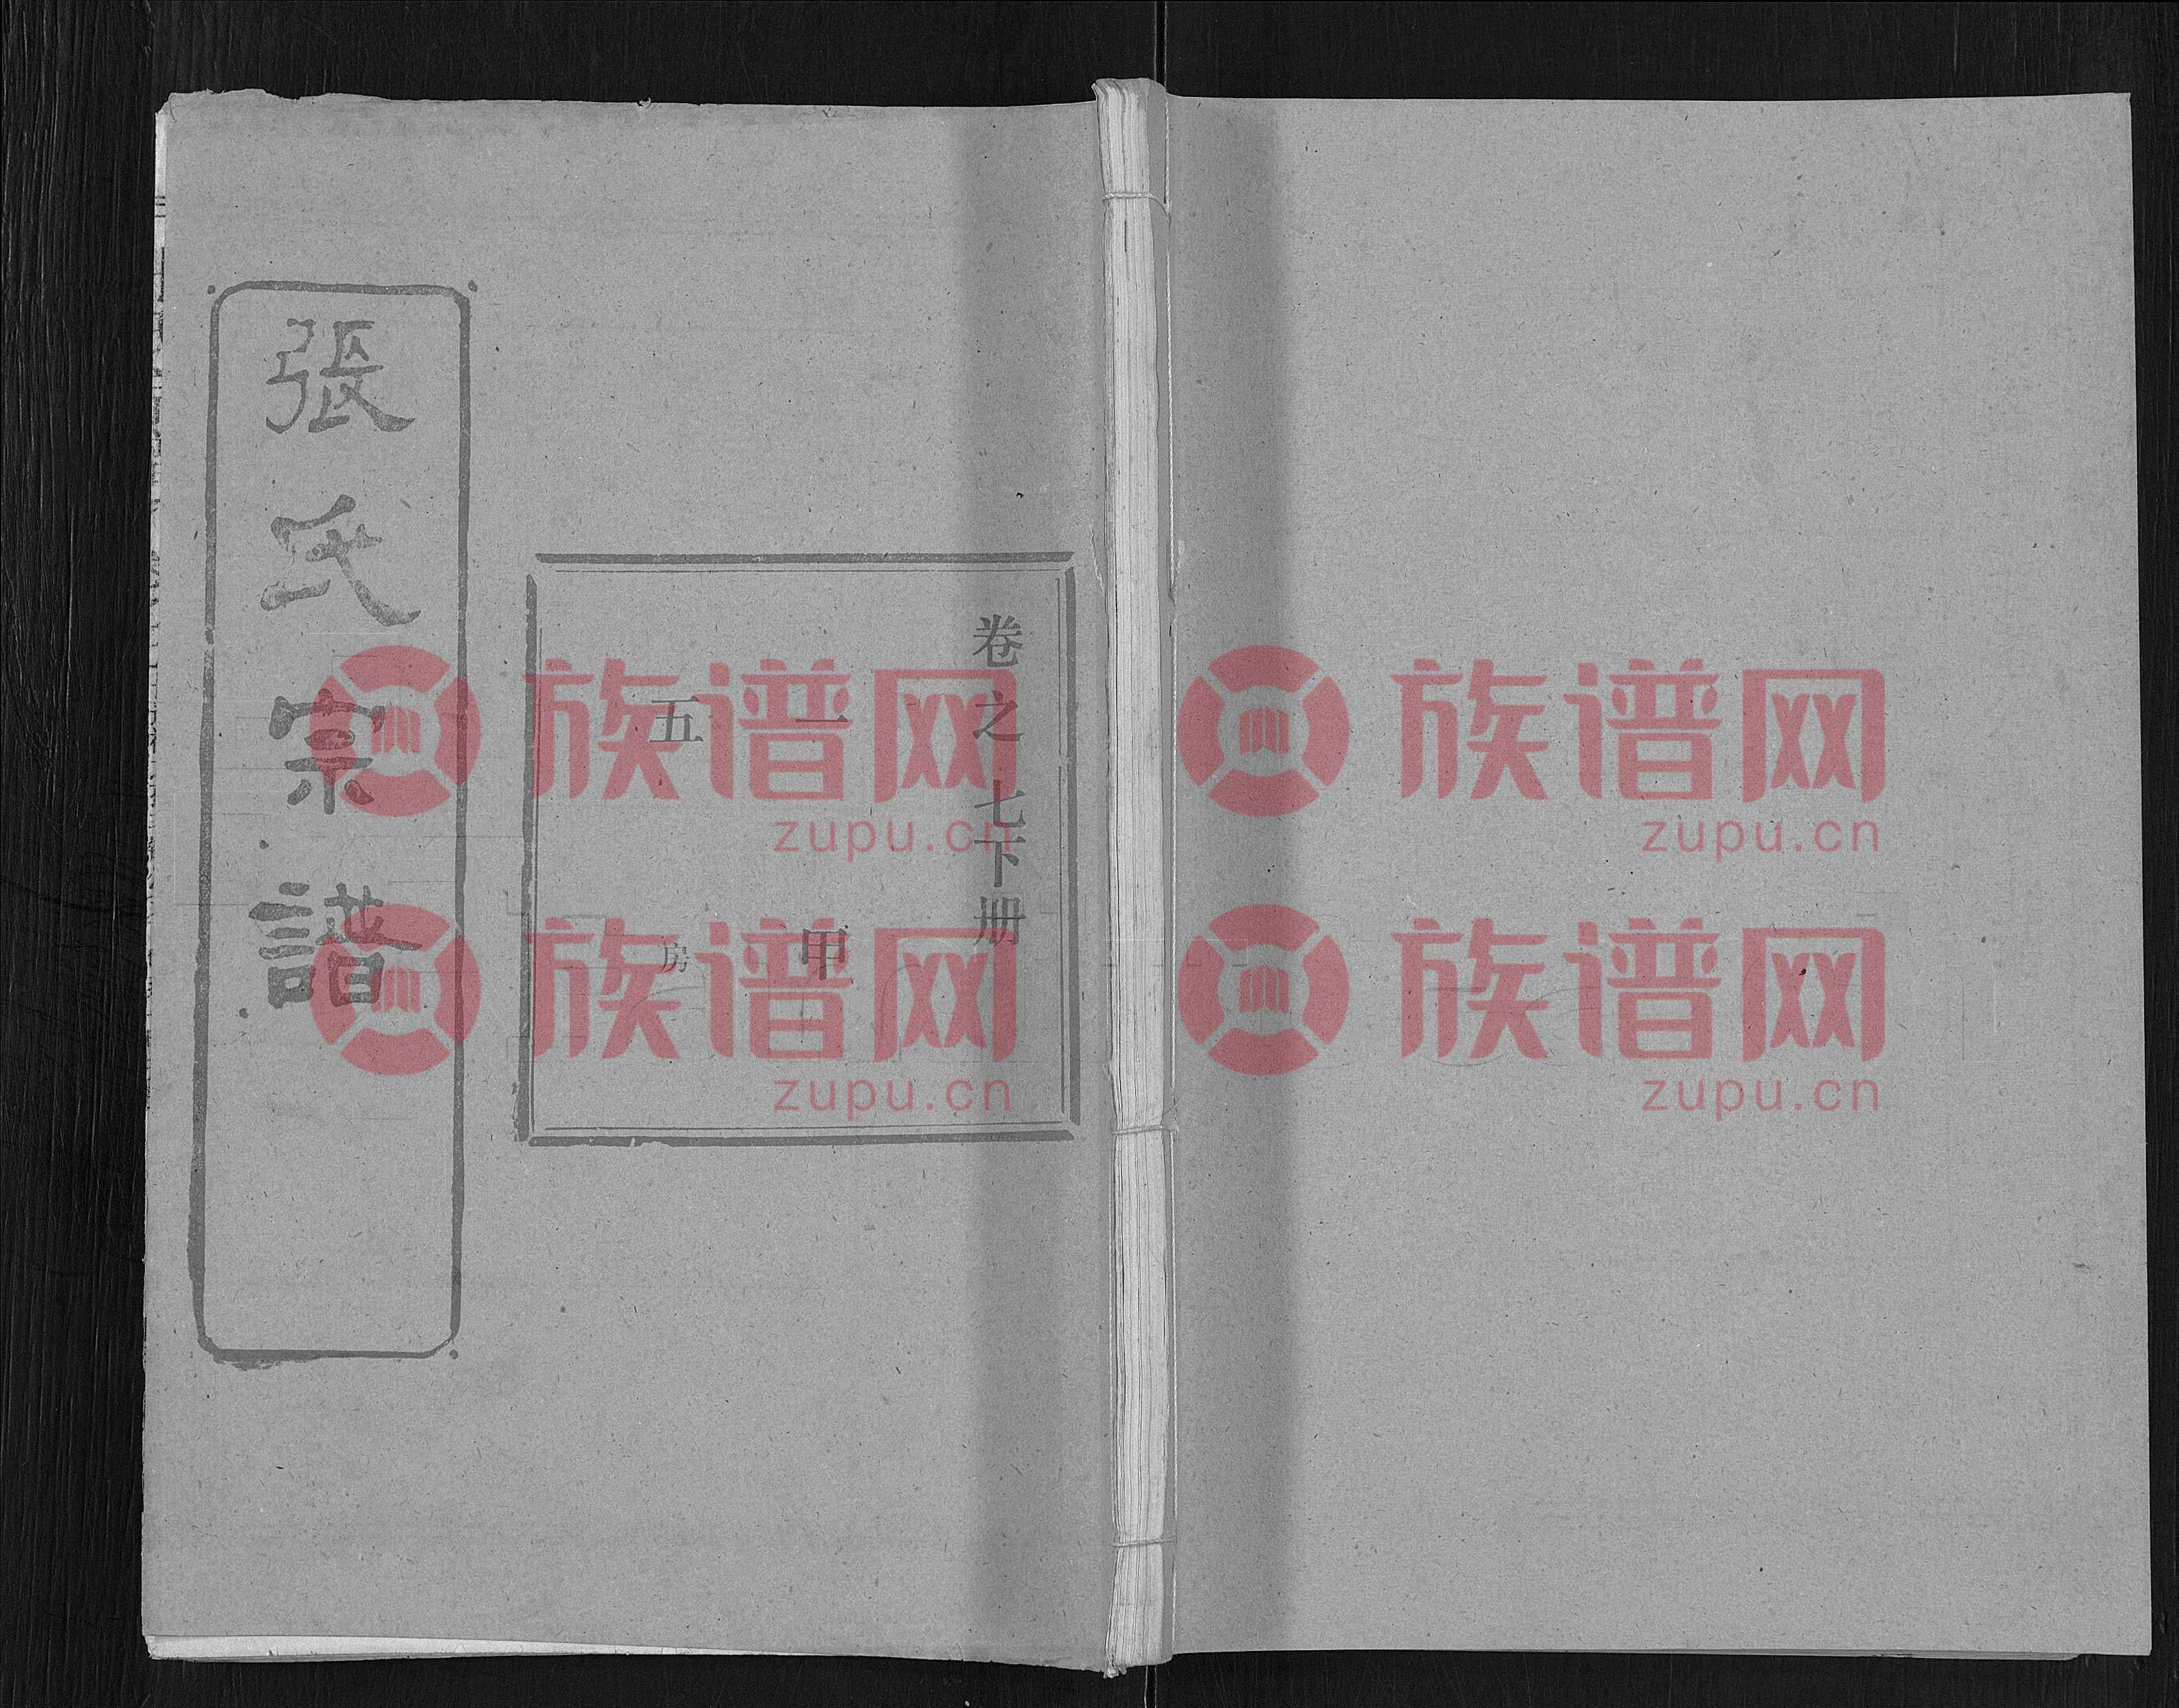 張氏宗譜
卷之七下册
一甲
五房
族谱网
zupu.cn
族谱网
zupu.cn
族谱网
zupu.cn
族谱网
zupu.cn